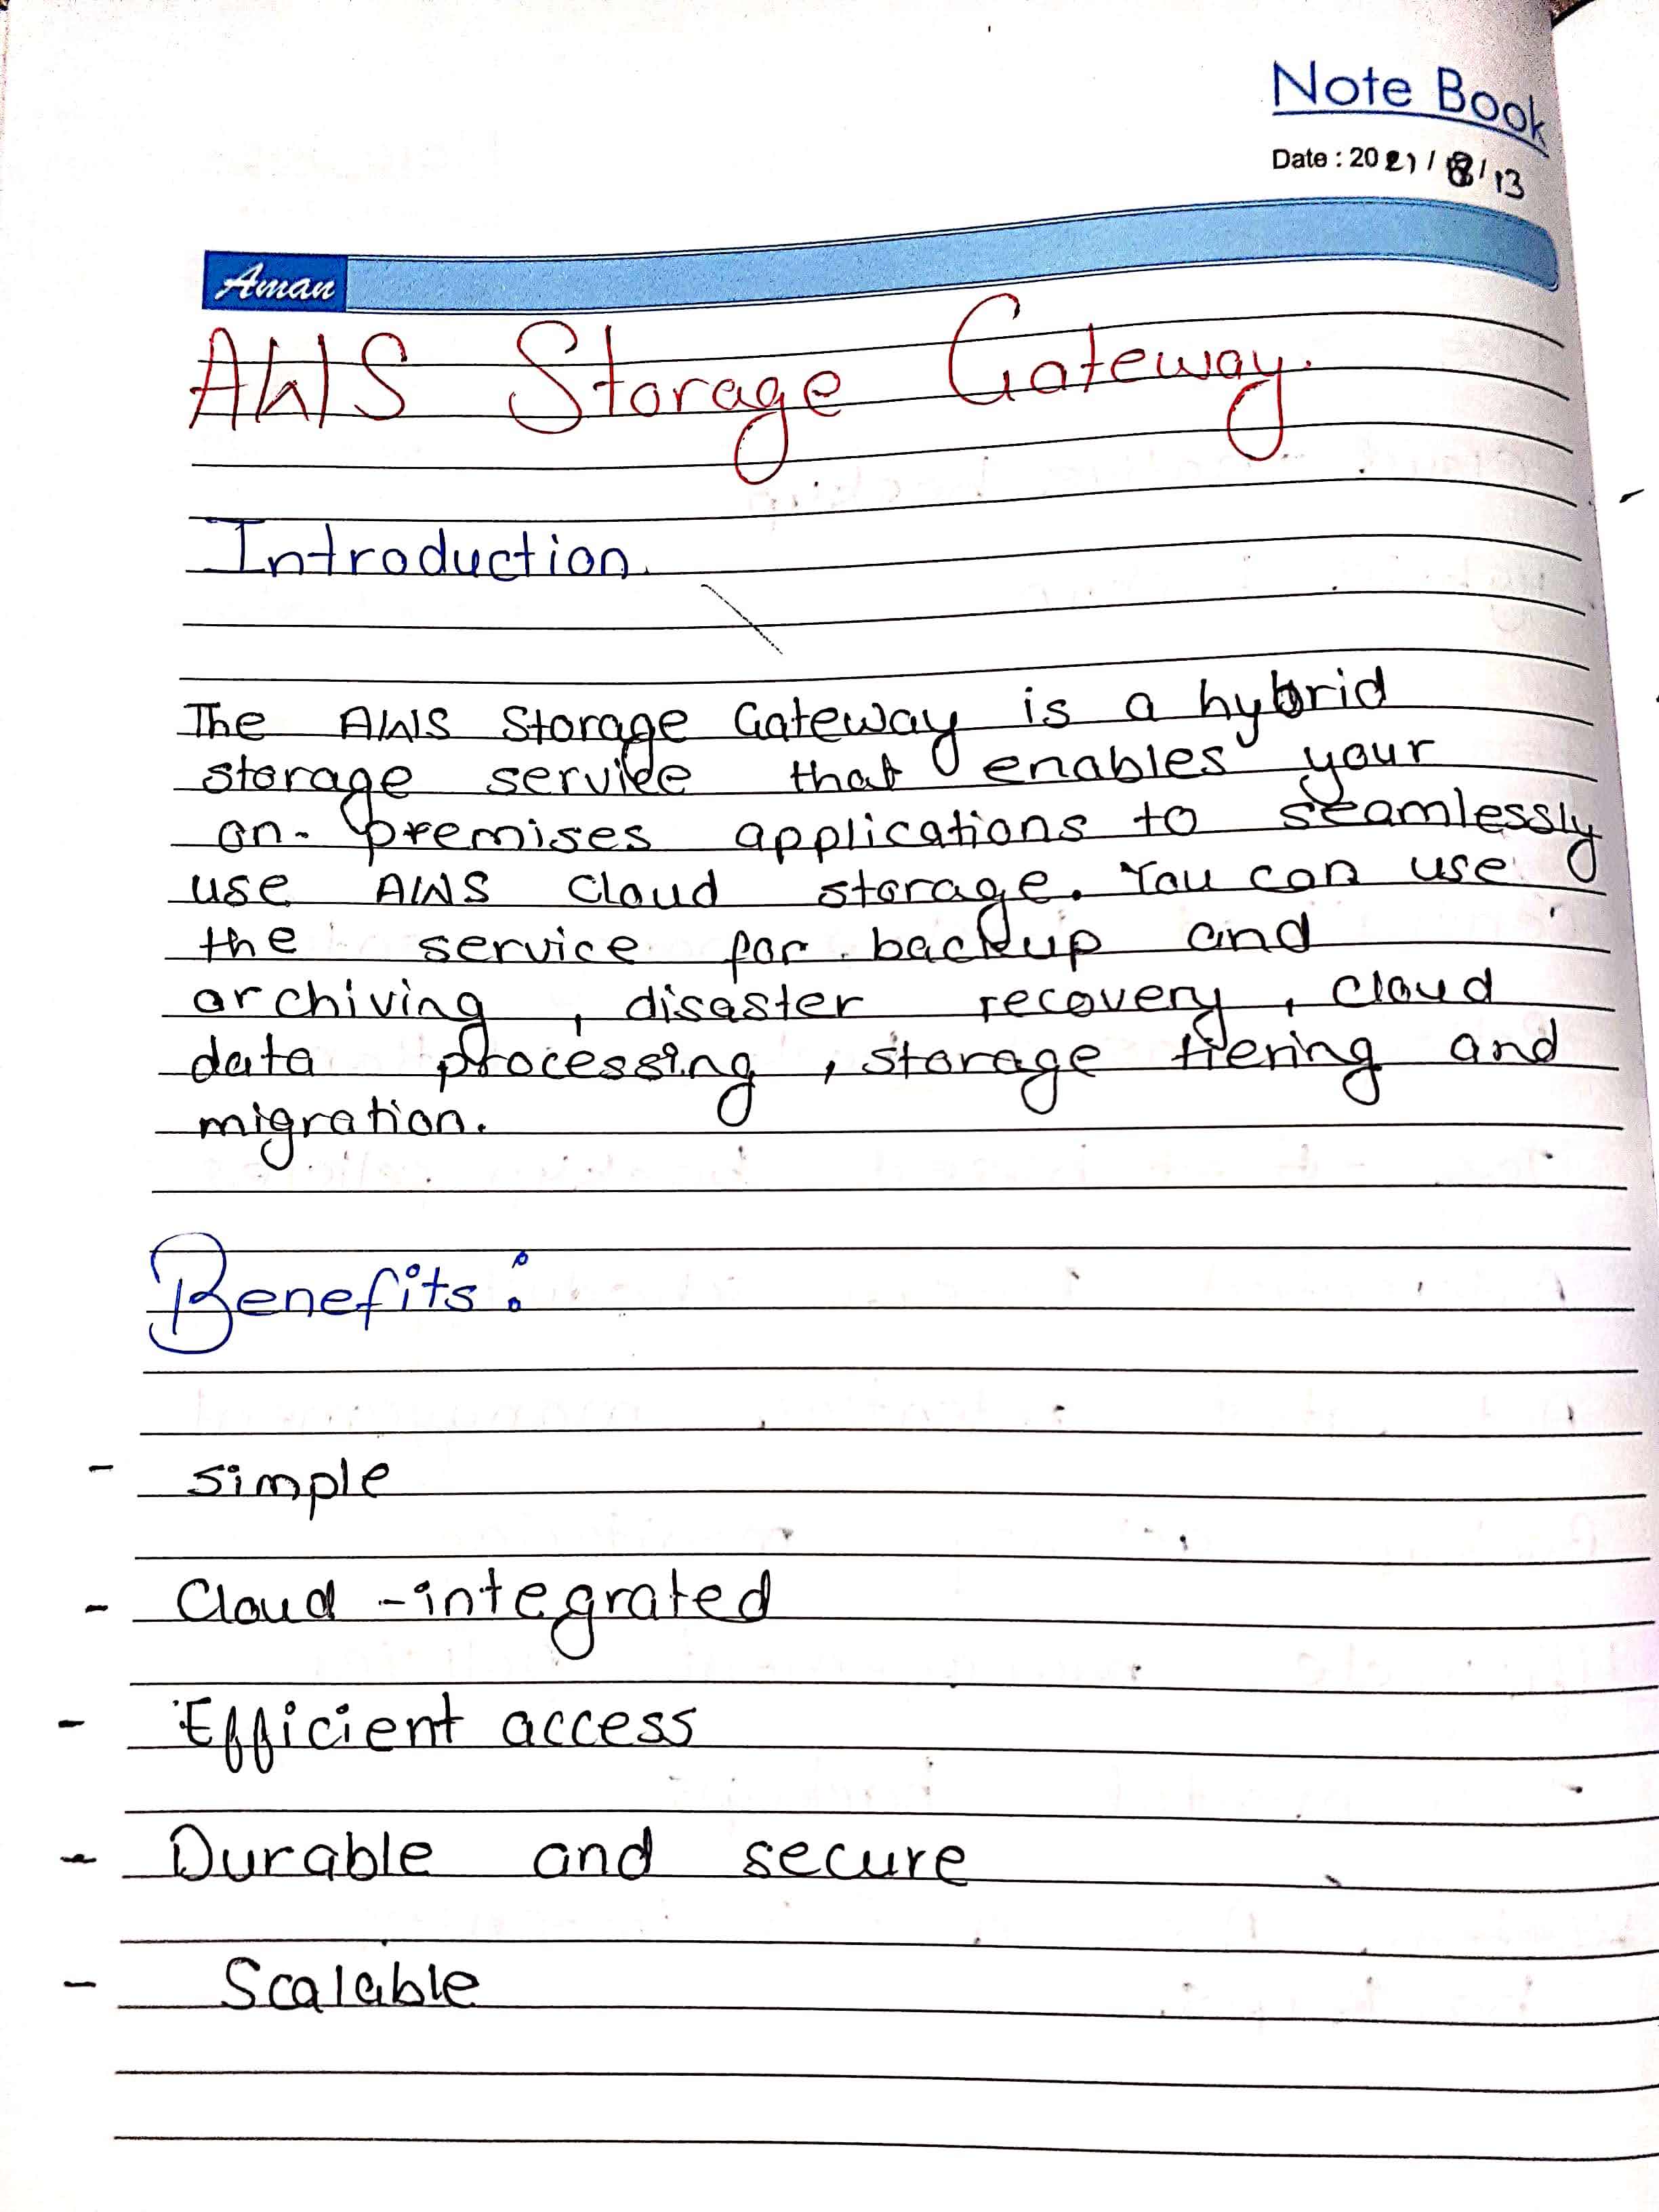 Note Book
Date : 2021 / 8 / 13
Aman
AWS Storage Gateway.
Introduction.
The AWS Storage Gateway is a hybrid
storage service that enables your
on-premises applications to seamlessly
use AWS Cloud storage. You can use
the service for backup and
archiving, disaster recovery, cloud
data processing, storage tiering and
migration.
Benefits:
- simple
- Cloud-integrated
- Efficient access
- Durable and secure
- Scalable